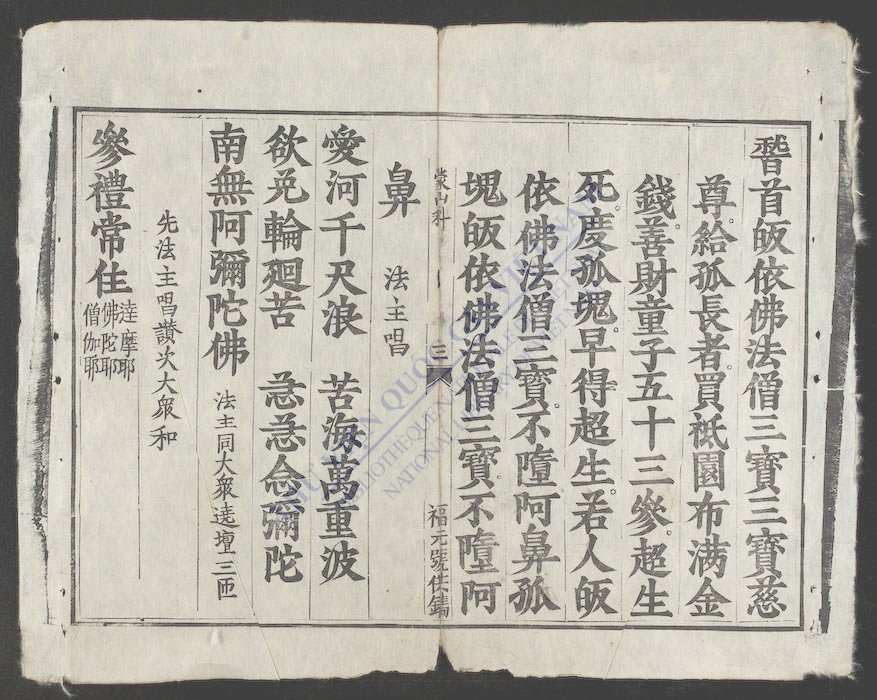 稽首皈依佛法僧三寶三寶慈
尊。給孤長者。買祇園布满金
錢。善財童子五十三參。超生
死。度孤魂。早得超生。若人皈
依佛法僧三寶。不墮阿鼻孤
塊皈依佛法僧三寶。不墮阿
蒙山科 三 福元號供鐫
鼻 法主唱
愛河千尺浪 苦海萬重波
欲免輪廻苦 急急念彌陀
南無阿彌陀佛 法主同大衆遶壇三匝
先法主唱讃次大衆和
參禮常住 達摩耶
佛陀耶
僧伽耶
THƯ VIỆN QUỐC GIA VIỆT NAM
BIBLIOTHÈQUE NATIONALE DU VIETNAM
NATIONAL LIBRARY OF VIETNAM